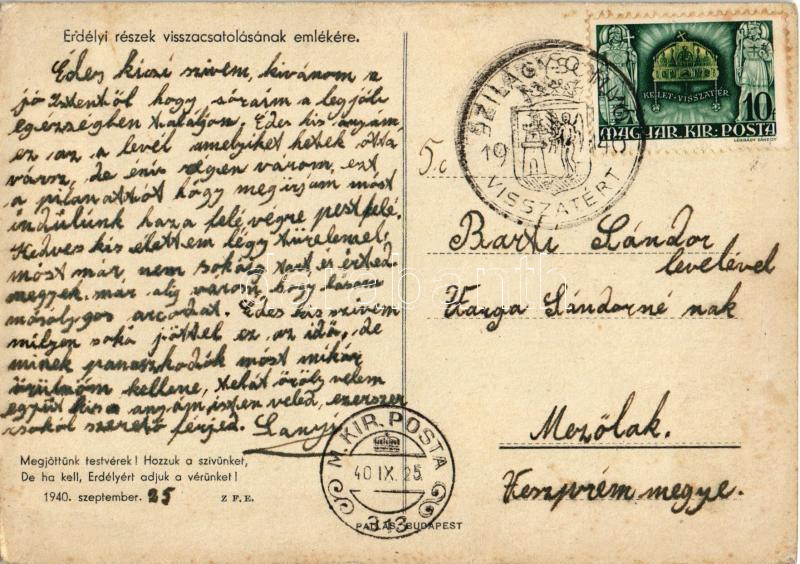 Erdélyi részek visszacsatolásának emlékére.
Édes kiczi szivem, kivánom a
jó Istentöl hogy soraim a legjob
egézségben talaljon. Édes kis anyam,
ez az a levél amelyiket hetek ota
vársz, de én is régen várom, ezt
a pilanattót hogy megirjam most
indulunk haza felé végre pest felé.
Kedves kis életem légy türelemel,
most már nem sokáig tart es érted
megyek, már alig várom hogy lássam
mosolygos arcodat. Édes kis szivem
milyen soká jöttel ez az idö, de
minek panaszkodók most mikór
örülnöm kellene, tehát örölj velem
együt kis anyám, isten veled, ezerszer
csokol szeretö férjed. Sanyi
Megjöttünk testvérek! Hozzuk a szivünket,
De ha kell, Erdélyért adjuk a vérünket!
1940. szeptember. 25 Z F. E.
PALLAS BUDAPEST
M. KIR. POSTA
40 IX. 25.
343
SZILÁGYSOMLYÓ
1940
VISSZATÉRT
KELET-VISSZATÉR
10f
MAGYAR KIR. POSTA
LÉGRÁDY SÁNDOR
5. c
Barti Sándor
levelével
Varga Sándorné nak
Mezölak.
Veszprém megye.
darabanth